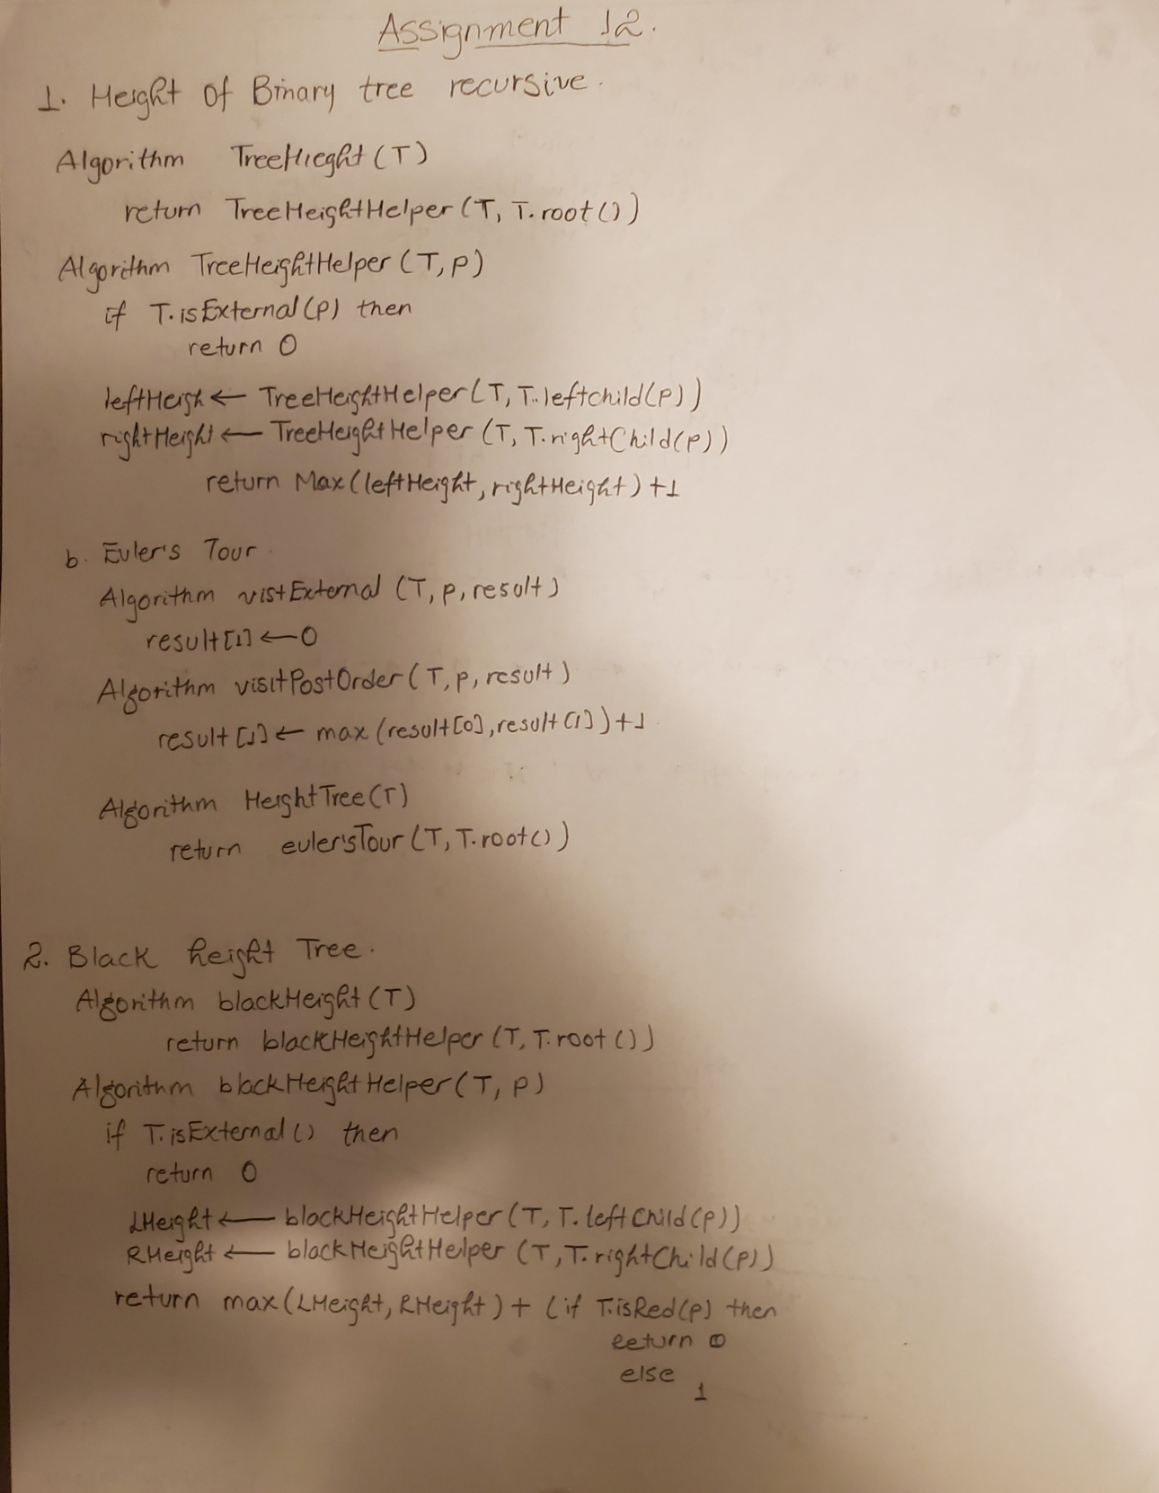 Assignment 12.
1. Height of Binary tree recursive.
Algorithm TreeHieght (T)
return TreeHeightHelper (T, T.root())
Algorithm TreeHeightHelper (T, p)
if T.isExternal(p) then
return 0
leftHeigh ← TreeHeightHelper (T, T.leftchild(p))
rightHeight ← TreeHeightHelper (T, T.rightChild(p))
return Max (leftHeight, rightHeight) +1
b. Euler's Tour.
Algorithm vistExternal (T, p, result)
result[1] ← 0
Algorithm visitPostOrder (T, p, result)
result [1] ← max (result[0], result[1]) +1
Algorithm HeightTree (T)
return euler'sTour (T, T.root())
2. Black height Tree.
Algorithm blackHeight (T)
return blackHeightHelper (T, T.root ())
Algorithm blackHeightHelper (T, p)
if T.isExternal () then
return 0
LHeight ← blackHeightHelper (T, T.leftChild (p))
RHeight ← blackHeightHelper (T, T.rightChild (p))
return max (LHeight, RHeight) + (if T.isRed(p) then
return 0
else
1